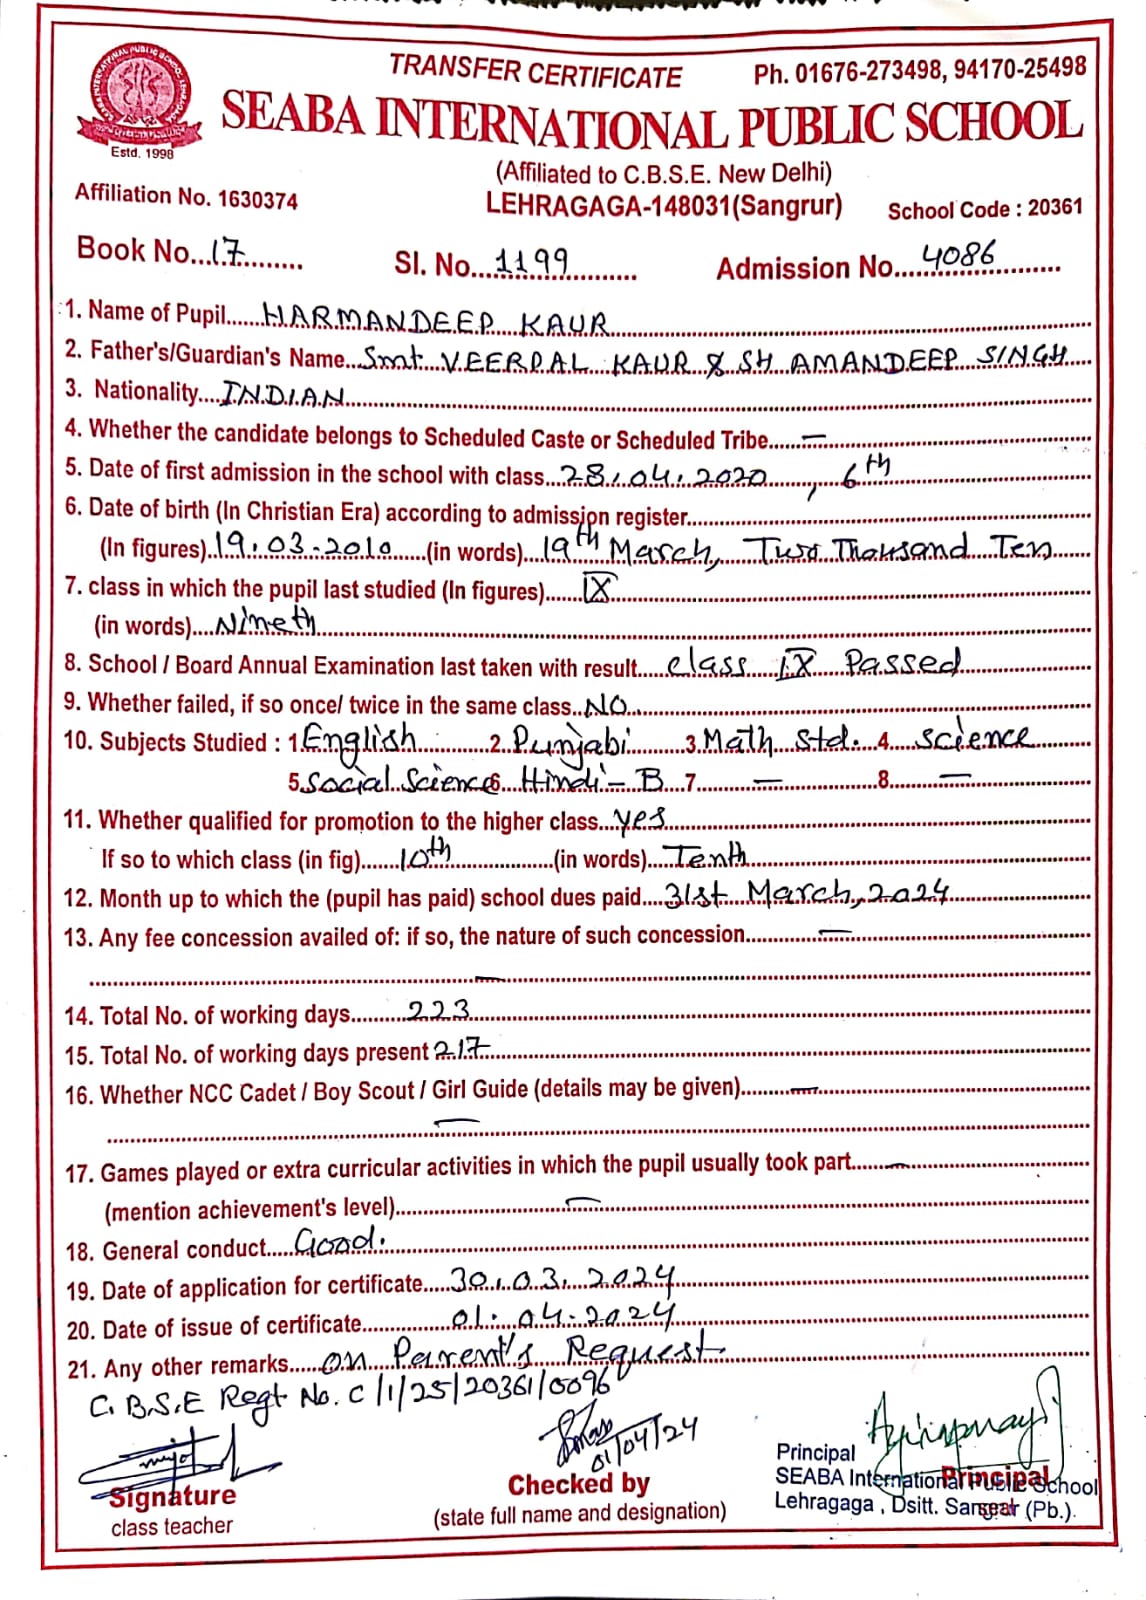 TRANSFER CERTIFICATE
Ph. 01676-273498, 94170-25498
SEABA INTERNATIONAL PUBLIC SCHOOL
Estd. 1998
(Affiliated to C.B.S.E. New Delhi)
Affiliation No. 1630374
LEHRAGAGA-148031(Sangrur)
School Code : 20361
Book No...17.........
Sl. No...1199..........
Admission No....4086..........
1. Name of Pupil......HARMANDEEP KAUR
2. Father's/Guardian's Name...Smt VEERPAL KAUR & SH AMANDEEP SINGH
3. Nationality....INDIAN
4. Whether the candidate belongs to Scheduled Caste or Scheduled Tribe......—
5. Date of first admission in the school with class...28.04.2020, 6th
6. Date of birth (In Christian Era) according to admission register
(In figures)..19.03-2010......(in words)...19th March, Two Thousand Ten
7. class in which the pupil last studied (In figures)......IX
(in words)....Nineth
8. School / Board Annual Examination last taken with result.....class IX Passed
9. Whether failed, if so once/ twice in the same class..NO
10. Subjects Studied : 1.English..........2.Punjabi........3.Math Std. 4....Science
5.Social Science 6...Hindi-B...7.......—...........8......—
11. Whether qualified for promotion to the higher class...yes
If so to which class (in fig)......10th...............(in words)....Tenth
12. Month up to which the (pupil has paid) school dues paid....31st March, 2024
13. Any fee concession availed of: if so, the nature of such concession..........—
—
14. Total No. of working days.........223
15. Total No. of working days present 217
16. Whether NCC Cadet / Boy Scout / Girl Guide (details may be given).......—
—
17. Games played or extra curricular activities in which the pupil usually took part.....—
(mention achievement's level)...........—
18. General conduct....Good.
19. Date of application for certificate....30.03.2024
20. Date of issue of certificate.............01.04.2024
21. Any other remarks.....on Parent's Request
C.B.S.E Regt No. C/1/25/20361/0096
01/04/24
Signature
class teacher
Checked by
(state full name and designation)
Principal
SEABA International Public School
Lehragaga , Dsitt. Sangrur (Pb.).
Principal
seal